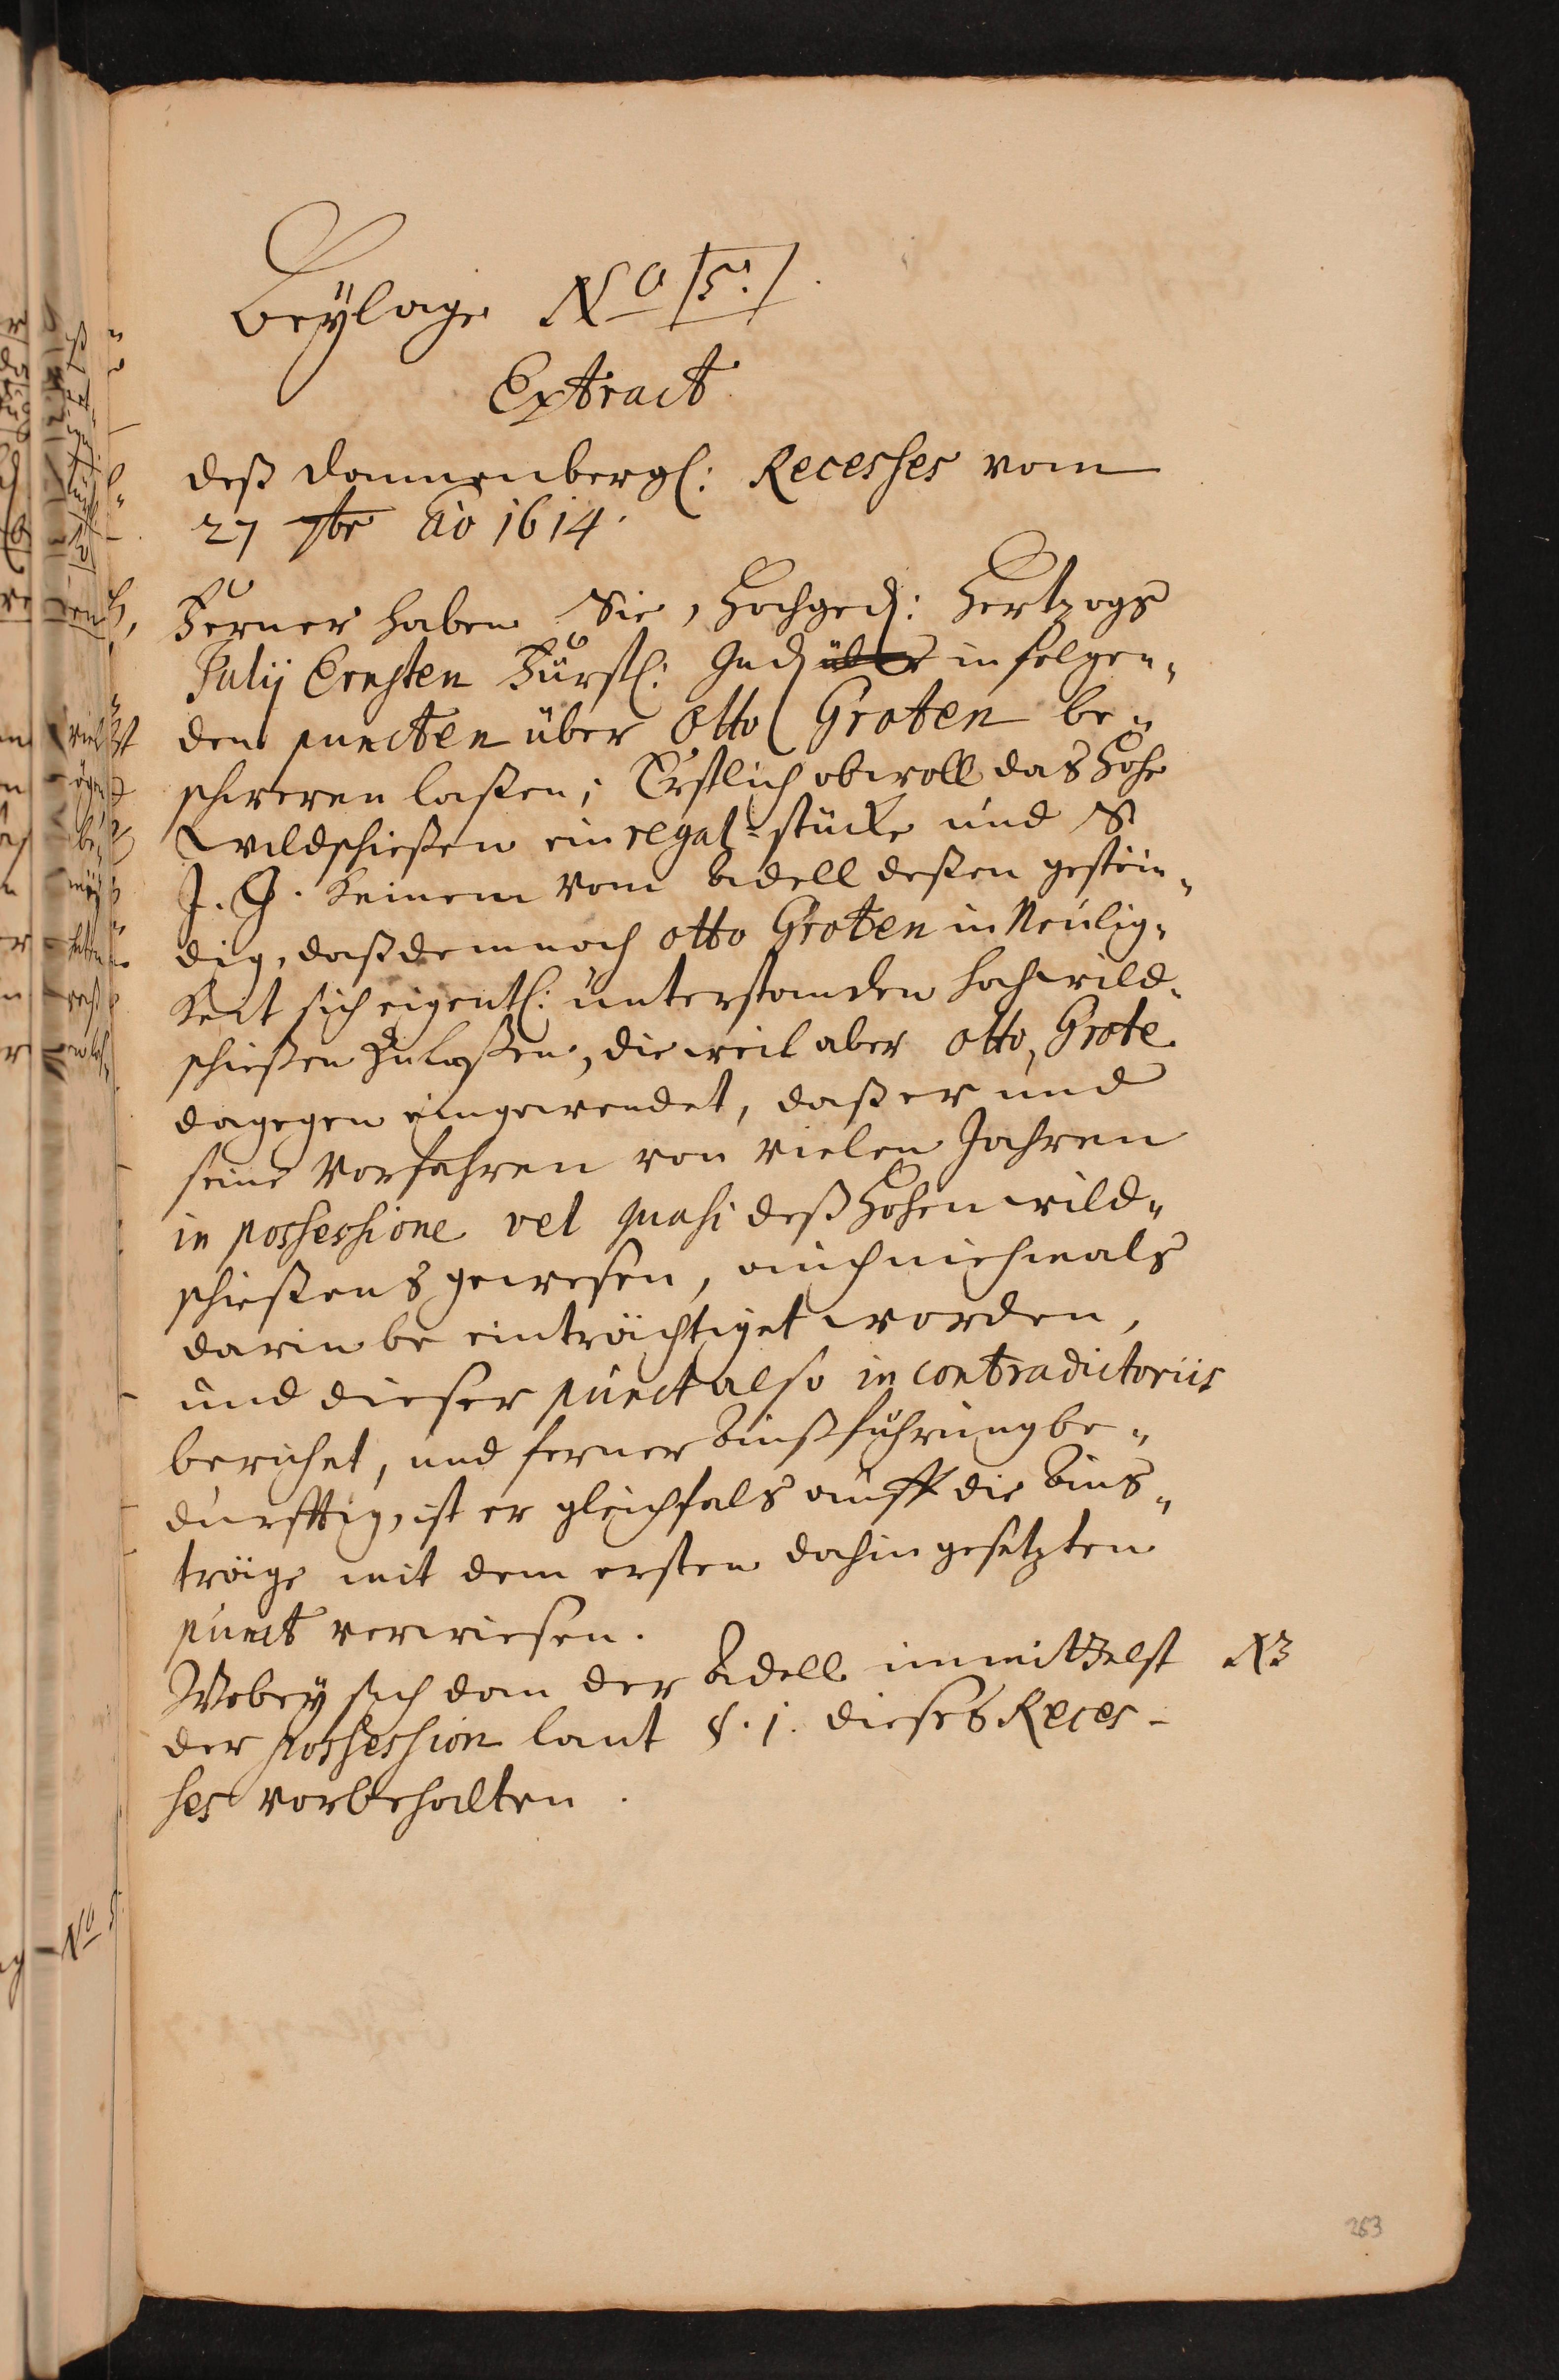 Beylage No 5.
Extract
deß dannenbergl: Recesses vom
27 7br Ao 1614.
Ferner haben Sie, Hochged: Hertzogs
Julij Ernsten Fürstl: Gnd in folgen„
den puncten über Otto Groten be„
schweren laßen; Erstlich obwoll das Hohe
Wildschießen ein regal-stücke und S
F. G. keinem vom Adell deßen gestän„
dig, daß dennoch Otto Groten in Neulig„
keit sich eigentl: unterstanden hochwild„
schießen zulaßen, dieweil aber Otto Grote
dagegen eingewendet, daß er und
seine Vorfahren von vielen Jahren
in possessione vel quasi deß Hohenwild„
schießens gewesen, auch niehmals
darin be einträchtiget worden,
und dieser punct also in contradictoriis
beruhet, und ferner Außführung be„
durfftig, ist er gleichfals auff die Aus„
träge mit dem ersten dahin gesetzten
punct verwiesen.
Wobey sich dan der Adell immittelst NB
der possession laut §. 1. dieses Reces-
ses vorbehalten.
No 5
263